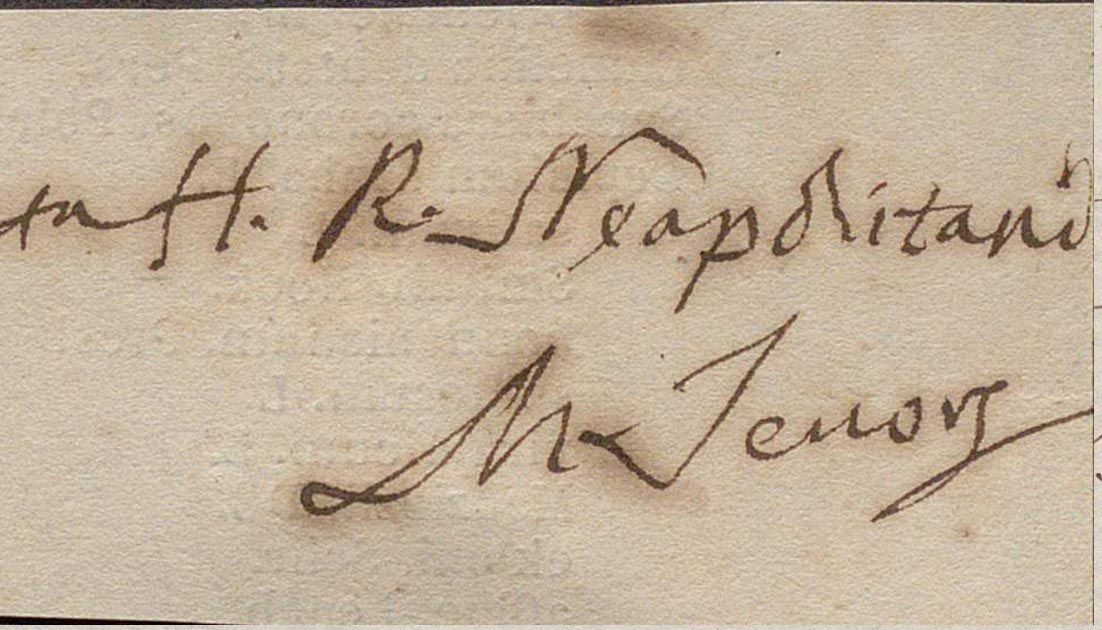 ta H. R. Neapolitano
M. Tenore